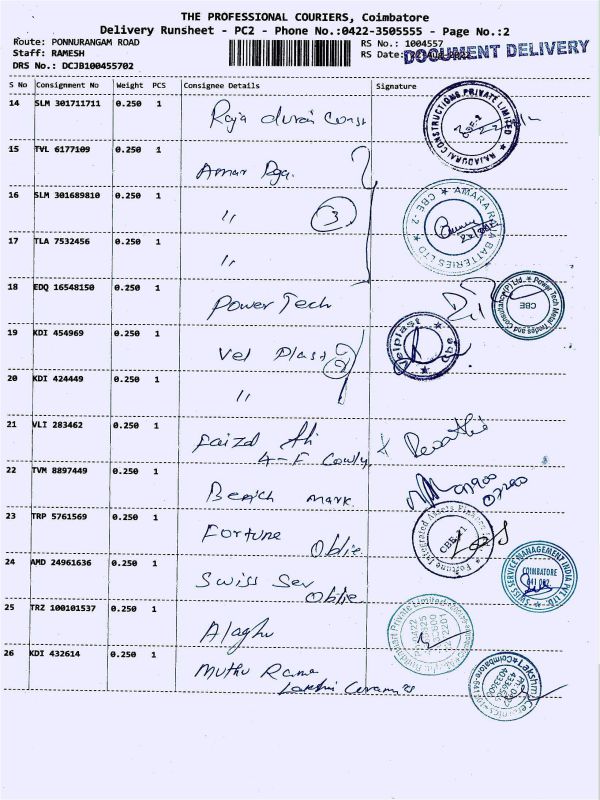 THE PROFESSIONAL COURIERS, Coimbatore
Delivery Runsheet - PC2 - Phone No.:0422-3505555 - Page No.:2
Route: PONNURANGAM ROAD
RS No.: 1004557
Staff: RAMESH
RS Date:
DOCUMENT DELIVERY
DRS No.: DCJB100455702
S No Consignment No Weight PCS Consignee Details Signature
14 SLM 301711711 0.250 1 Raja durai Const
RAJADURAI CONSTRUCTIONS PRIVATE LIMITED CBE-2
15 TVL 6177109 0.250 1 Amar Raja
16 SLM 301689810 0.250 1 " 3
AMARA RAJA BATTERIES LTD CBE-2
17 TLA 7532456 0.250 1 "
18 EDQ 16548150 0.250 1 Power Tech
Power Tech Metal Trades and Consultancy (P) Ltd., CBE
19 KDI 454969 0.250 1 Vel Plast 2
Velplast CBE
20 KDI 424449 0.250 1 "
21 VLI 283462 0.250 1 Faizal Ali
Revathi
22 TVM 8897449 0.250 1 Bench mark
23 TRP 5761569 0.250 1 Fortune
Fortune Integrated Assets Finance
24 AMD 24961636 0.250 1 Swiss Ser
SWISS SERVICE MANAGEMENT INDIA PVT LTD. COIMBATORE 641 002
25 TRZ 100101537 0.250 1 Alaghu
Private Limited
26 KDI 432614 0.250 1 Muthu Rama
Lakshmi Ceramics
Lakshmi Ceramics Coimbatore-641